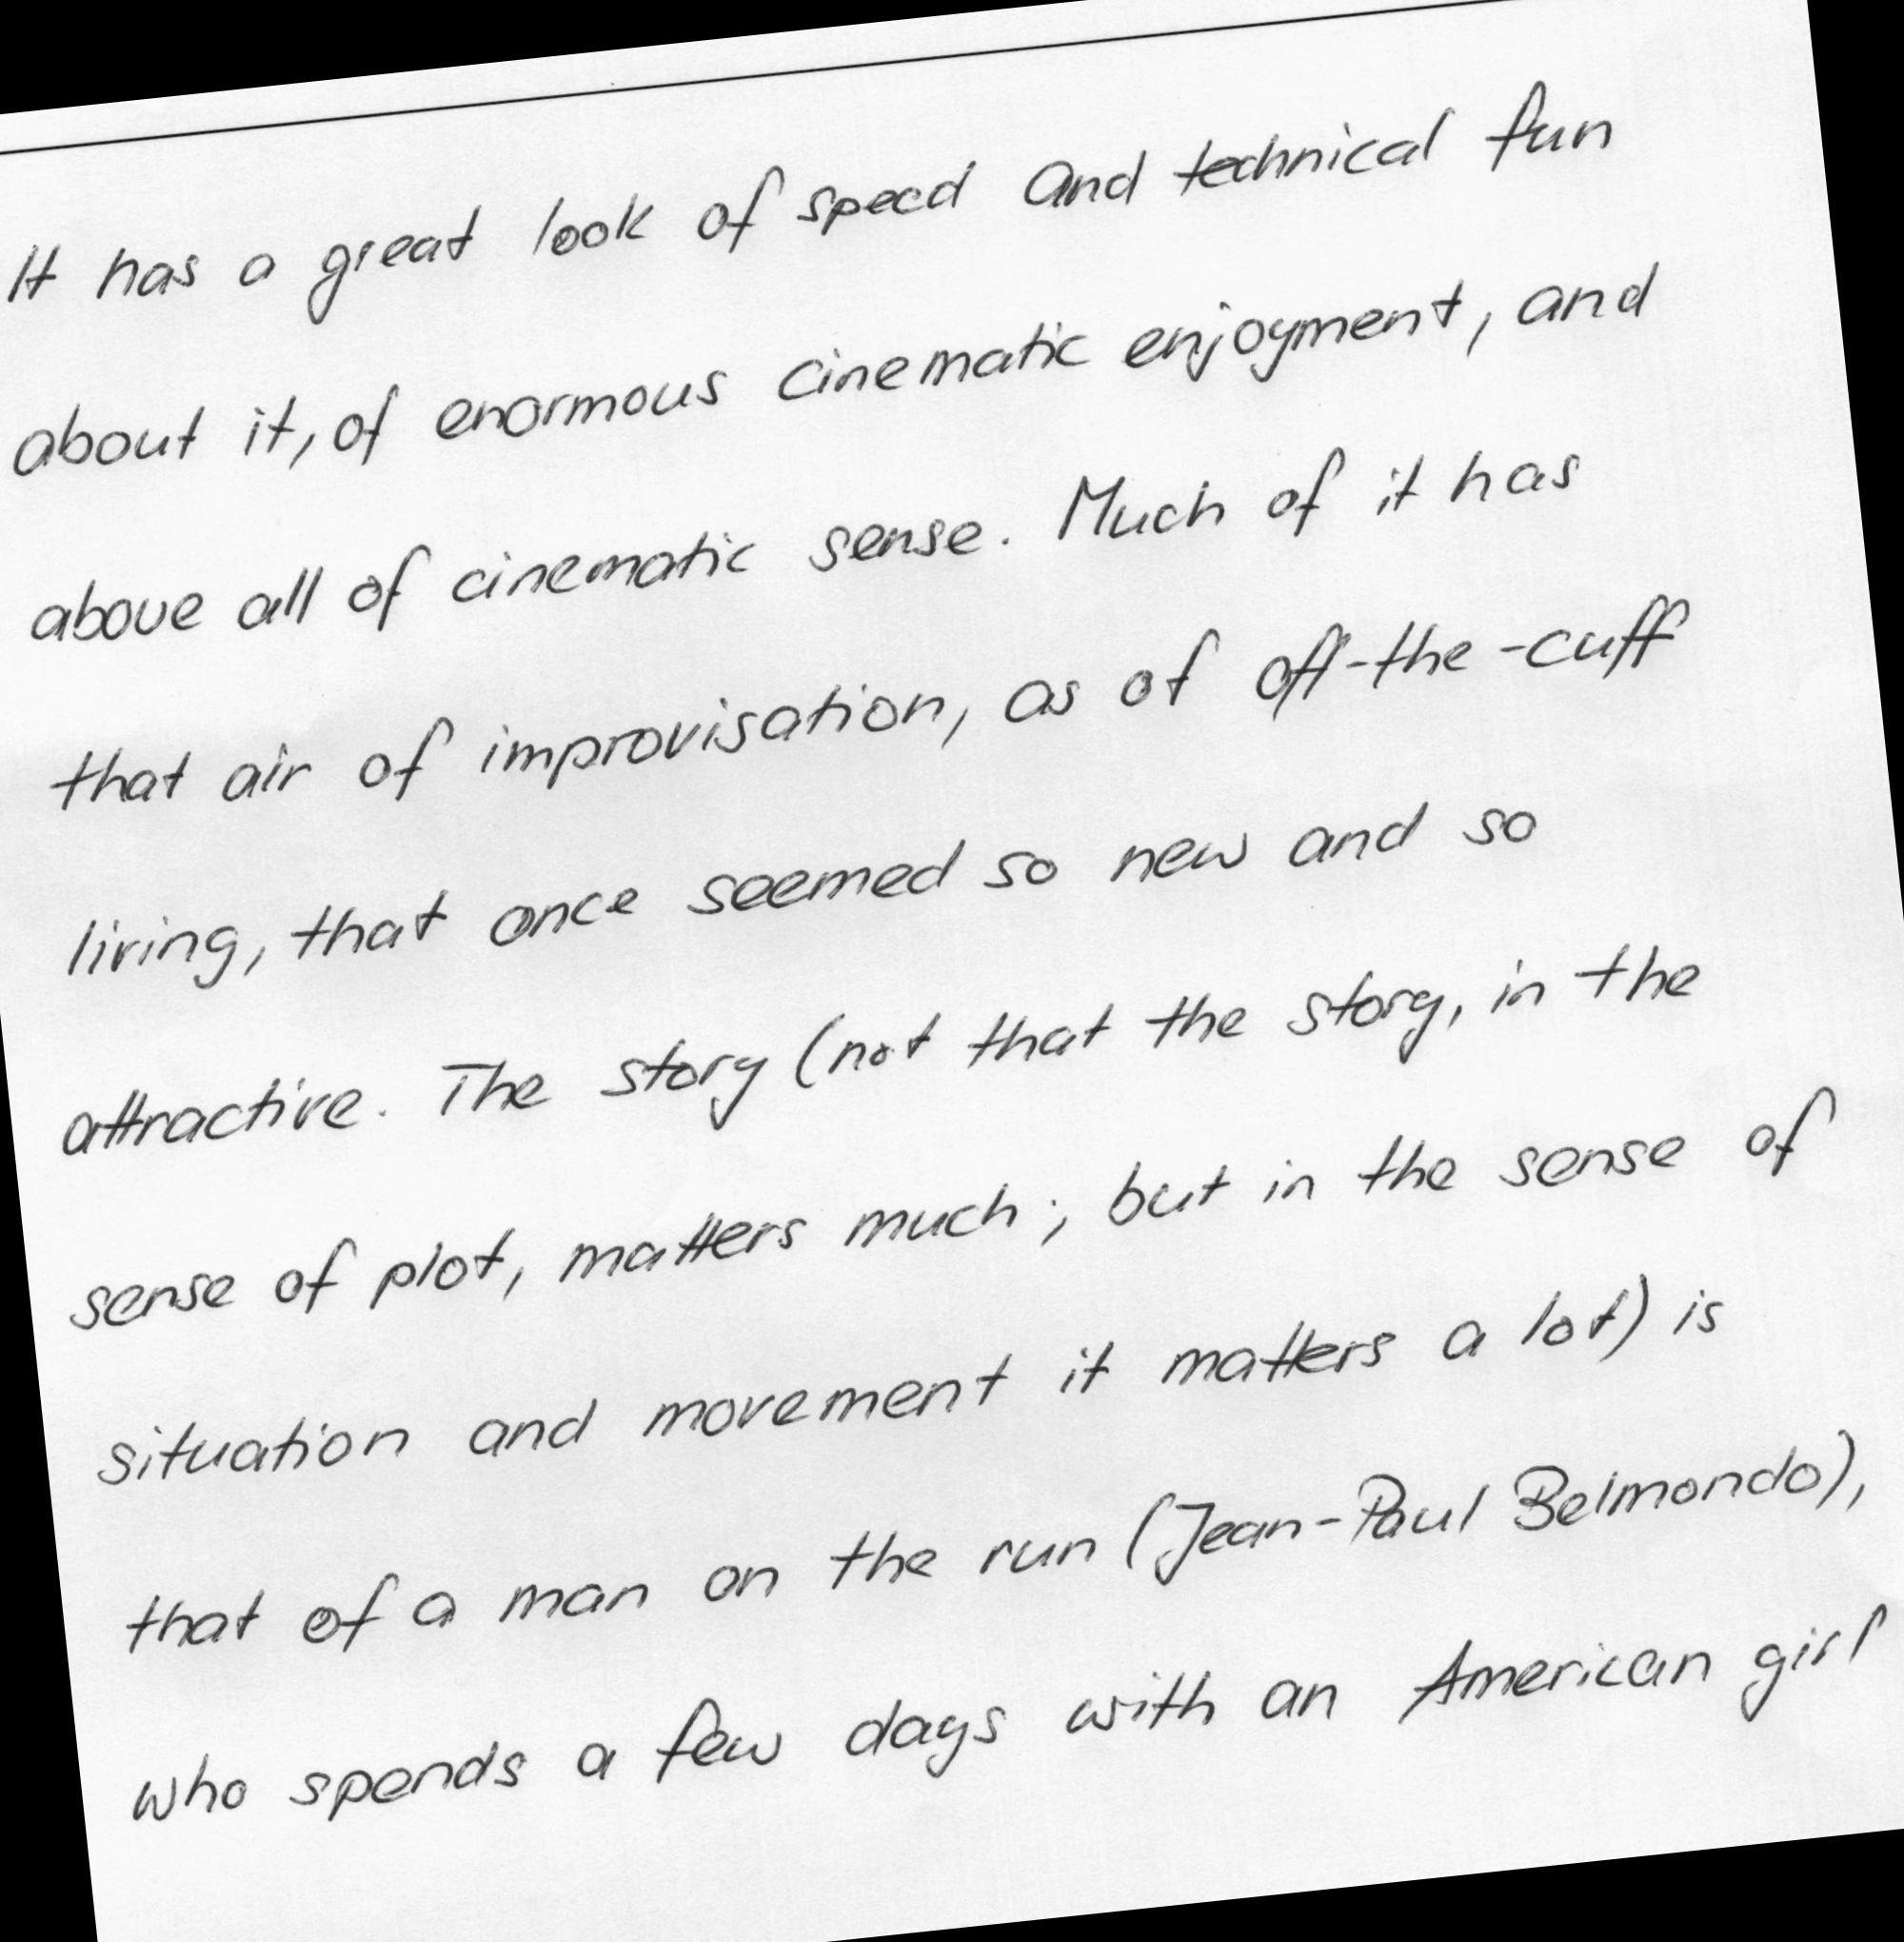 It has a great look of speed and technical fun
about it, of enormous cinematic enjoyment, and
above all of cinematic sense. Much of it has
that air of improvisation, as of off-the-cuff
living, that once seemed so new and so
attractive. The story (not that the story, in the
sense of plot, matters much; but in the sense of
situation and movement it matters a lot) is
that of a man on the run (Jean-Paul Belmondo),
who spends a few days with an American girl